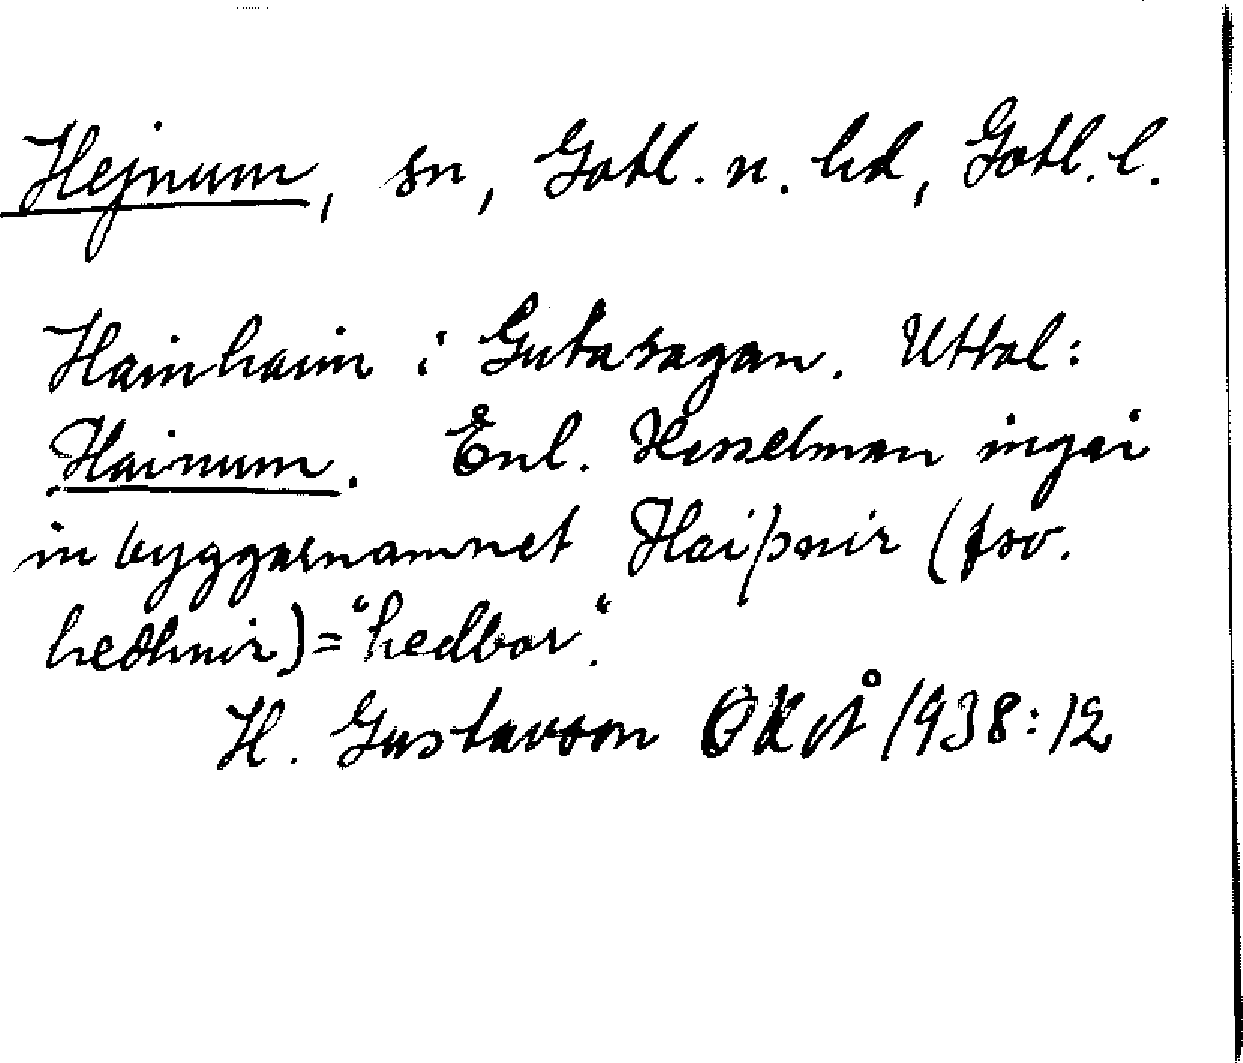 Hejnum, sn, Gotl. n. hd, Gotl. l.
Hainhaim i Gutasagan. Uttal:
Hainum. Enl. Hesselman ingår
inbyggarnamnet Haiþnir (fsv.
hedhnir) = "hedbor".
H. Gustavson OKvÅ 1938:12